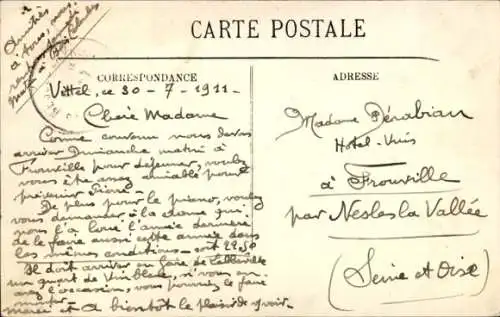 CARTE POSTALE
CORRESPONDANCE
ADRESSE
Vittel, ce 30-7-1911-
Chère Madame
Comme convenu nous devons
arriver Dimanche matin à
Frouville pour déjeuner, voulez
vous être assez aimable pour
prévenir Pierre-
De plus pour le piano, voulez
vous demander à la dame qui
nous l'a loué l'année dernière
de le faire aussi cette année dans
les mêmes conditions - soit 22.50
Il doit arriver en gare de
un quart de vin blanc, si vous en
avez l'occasion, vous pourriez le faire
merci et à bientôt le plaisir de vous voir.
Amitiés
à tous,
Madame Dérabian
Hotel-
à Frouville
par Nesles la Vallée
(Seine et Oise)